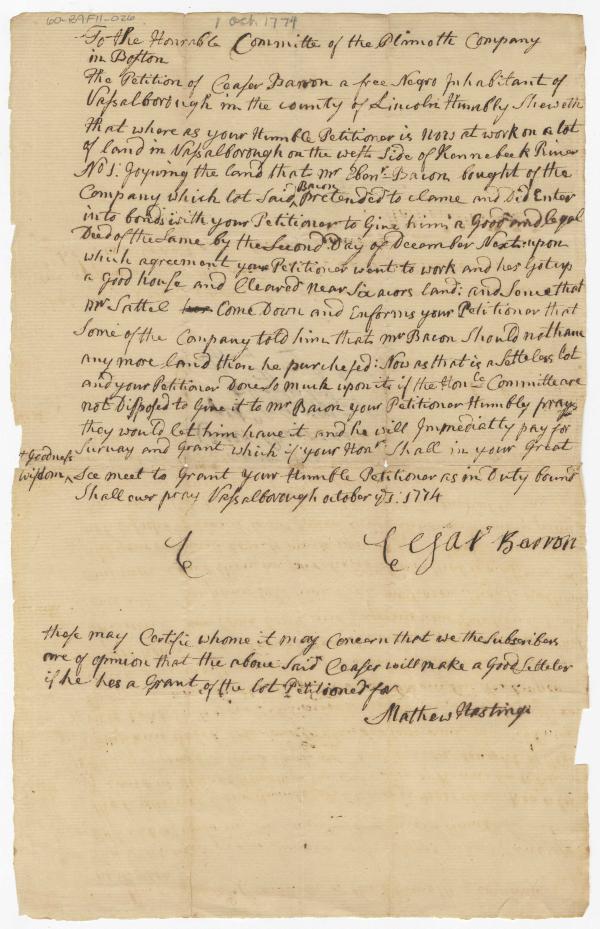 60-RAF11-026
1 Oct 1774
To the Honrable Committe of the Plimoth Company
in Boston
The Petition of Ceaser Barron a free Negro Inhabitant of
Vassalborough in the county of Lincoln Humbly Sheweth
that where as your Humble Petitioner is Now at work on a lot
of land in Vassalborough on the weth Side of Kennebeck River
No 1: Joyning the land that mr Ebenr. Bacon bought of the
Company which lot Said Bacon Pretended to clame and Did Enter
into bonds with your Petitioner to Give him a Good and legal
Died of the Same by the Second Day of December Next upon
which agreement your Petitioner went to work and hes Got up
a Good house and Cleared near Six acors land: and Some that
mr Sattel Come Down and Enforms your Petitioner that
Some of the Company told him that mr Bacon Should not have
any more land than he purchesed: Now as that is a Setteless lot
and your Petitioner Done So much upon it if the Honble Committe are
not Disposed to Give it to Mr Bacon your Petitioner Humbly prays
they would let him have it and he will Immediatly pay for
Survay and Grant which if your Honrs Shall in your Great
+ Goodness
wisdom ^ See meet to Grant your Humble Petitioner as in Duty bound
Shall ever pray Vassalborough october ye 1: 1774
Cesar Barron
these may Certifie whome it may Concern that we the Subscribers
are of opinion that the above Said Ceaser will make a Good Setteler
if he hes a Grant of the lot Petitioned for
Mathew Hastings